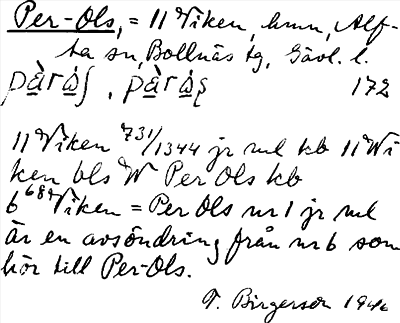 Per-Ols, = 11 Viken, hmn, Alf-
ta sn, Bollnäs tg, Gävl. l.
pàrás, pàrás 172
11 Viken 731/1344 jr ml kb 11 Vi
ken bls W Per Ols kb
6 684 Viken = Per Ols nr 1 jr ml
Är en avsöndring från nr 6 som
hör till Per-Ols.
T. Birgerson 1946